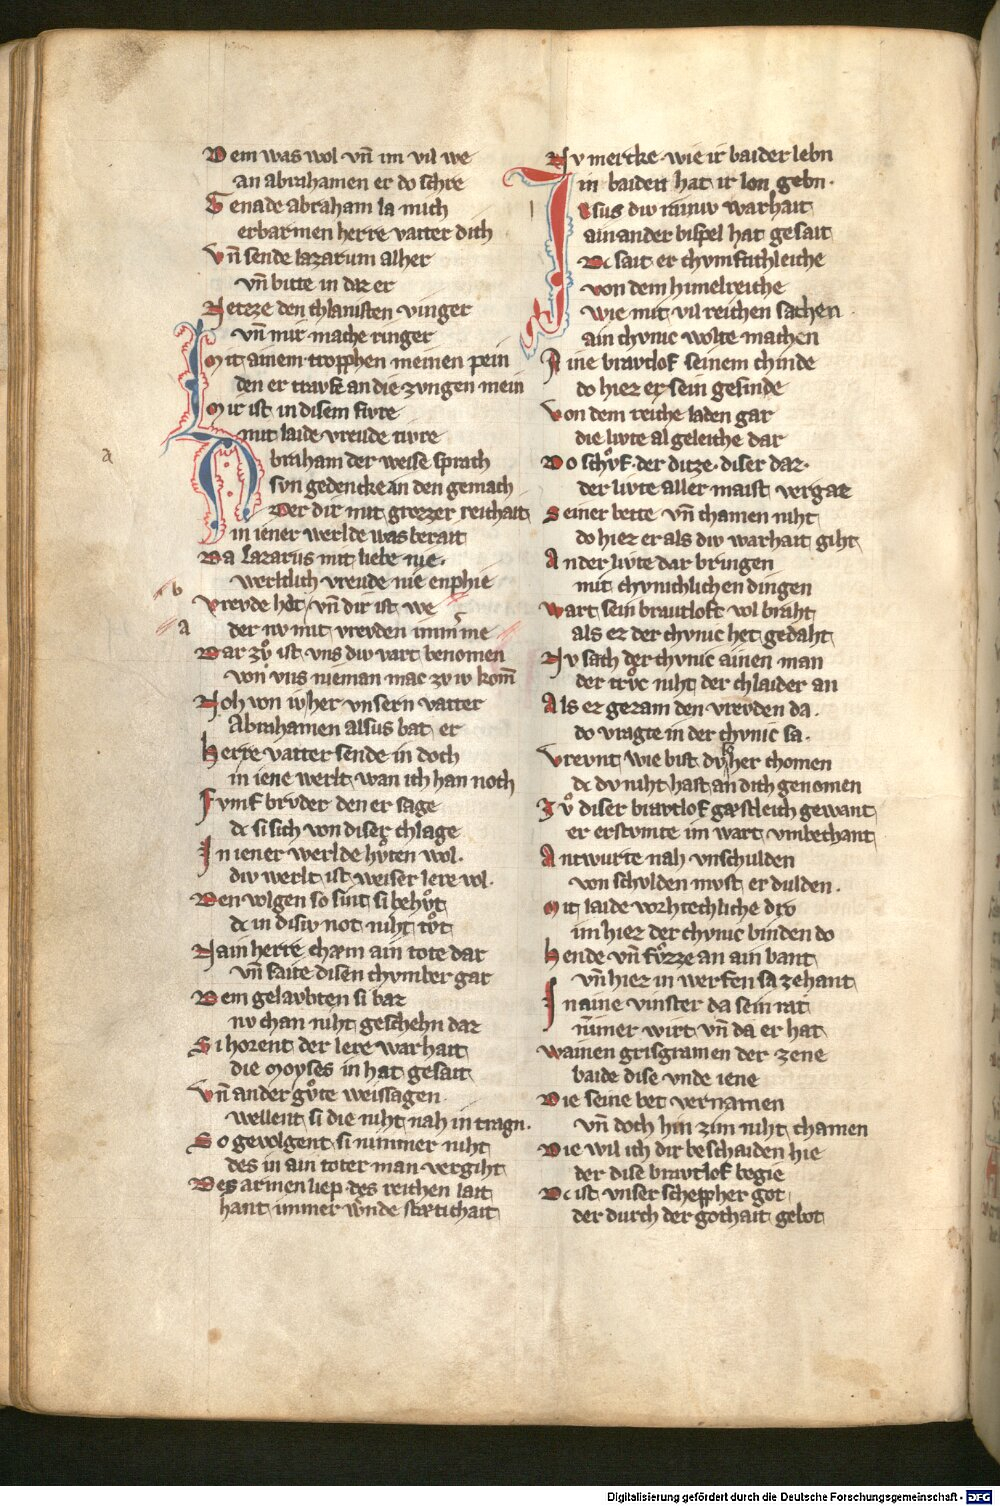 Dem was wol vn̄ im vil we
an abrahamen er do schre
Genade abraham la mich
erbarmen herre vatter dich
Vn̄ sende lazarum alher
vn̄ bitte in daz er
Netzze den chlainsten vinger
vn̄ mir mache ringer
Mit ainem tropphen meinen pein
den er travfe an die zvngen mein
Mir ist in disem fivre
mit laide vrevde tivre
Abraham der weise sprach
svn gedencke an den gemach
Der dir mit grozzer reichait
in iener werlde was berait
Da Lazarus mit liebe nie
werltlich vrevde nie enphie
Vrevde hat vn̄ dir ist we
a
b
a
der nv mit vrevden immer me
Dar zvͦ ist vns div vart benomen
von vns nieman mac zv iv kom̄
Noh von iv her vnsern vatter
Abrahamen alsus bat er
Herre vatter sende in doch
in iene werlt wan ich han noch
Fvmf brvder den er sage
dc si sich von diser chlage
In iener werlde hvͤten wol.
div werlt ist weiser lere vol.
Den volgen so sint si behvͤt
dc in disiv not niht tvͦt
Nain herre chæm ain tote dar
vn̄ saite disen chvmber gar
Dem gelavbten si bar
nv chan niht geschehn daz
Si horent der lere warhait
die Moyses in hat gesait
Vn̄ ander gvͦte weissagen
wellent si die niht nah in tragn.
So gevolgent si nimmer niht
des in ain toter man vergiht
Des armen liep des reichen lait
hant immer wͤnde stætichait
Nv mercke wie ir baider lebn
in baiden hat ir lon gebn.
Iesus div rainiv warhait
ain ander bispel hat gesait
Dc sait er chvmftichleiche
von dem himelreiche
wie mit vil reichen sachen
ain chvnic wolte machen
Aine bravtlof seinem chinde
do hiez er sein gesinde
Von dem reiche laden gar
die livte al geleiche dar
Do schvͦf. der ditze. diser daz.
der livte aller maist vergaz
Seiner bette vn̄ chamen niht
do hiez er als div warhait giht
Ander livte dar bringen
mit chvnichlichen dingen
Wart sein brautloft vol braht
als ez der chvnic het gedaht
Nv sach der chvnic ainen man
der trvͦc niht der chlaider an
Als ez gezam den vrevden da.
do vragte in der chvnic sa.
Vrevnt wie bist dv her chomen
dc dv niht hast an dich genomen
Zvͦ diser bravtlof gæstleich gewant
er erstvmte im wart vmbechant
Antwurte nah vnschulden
von schvlden mvst er dulden.
Mit laide vorhtechliche dro
im hiez der chvnic binden do
Hende vn̄ fvͤzze an ain bant
vn̄ hiez in werfen sa zehant
In aine vinster da sein rat
nimmer wirt vn̄ da er hat
Wainen grisgramen der zene
baide dise vnde iene
Die seine bet vernamen
vn̄ doch hin zim niht chamen
Die wil ich dir beschaiden hie
der dise bravtlof begie
Dc ist vnser schepfher got
der durch der gothait gebot
Digitalisierung gefördert durch die Deutsche Forschungsgemeinschaft - DFG